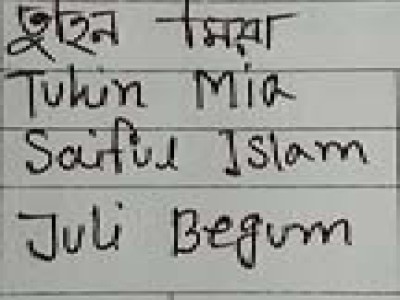 তুহিন মিয়া
Tuhin Mia
Saiful Islam
Juli Begum